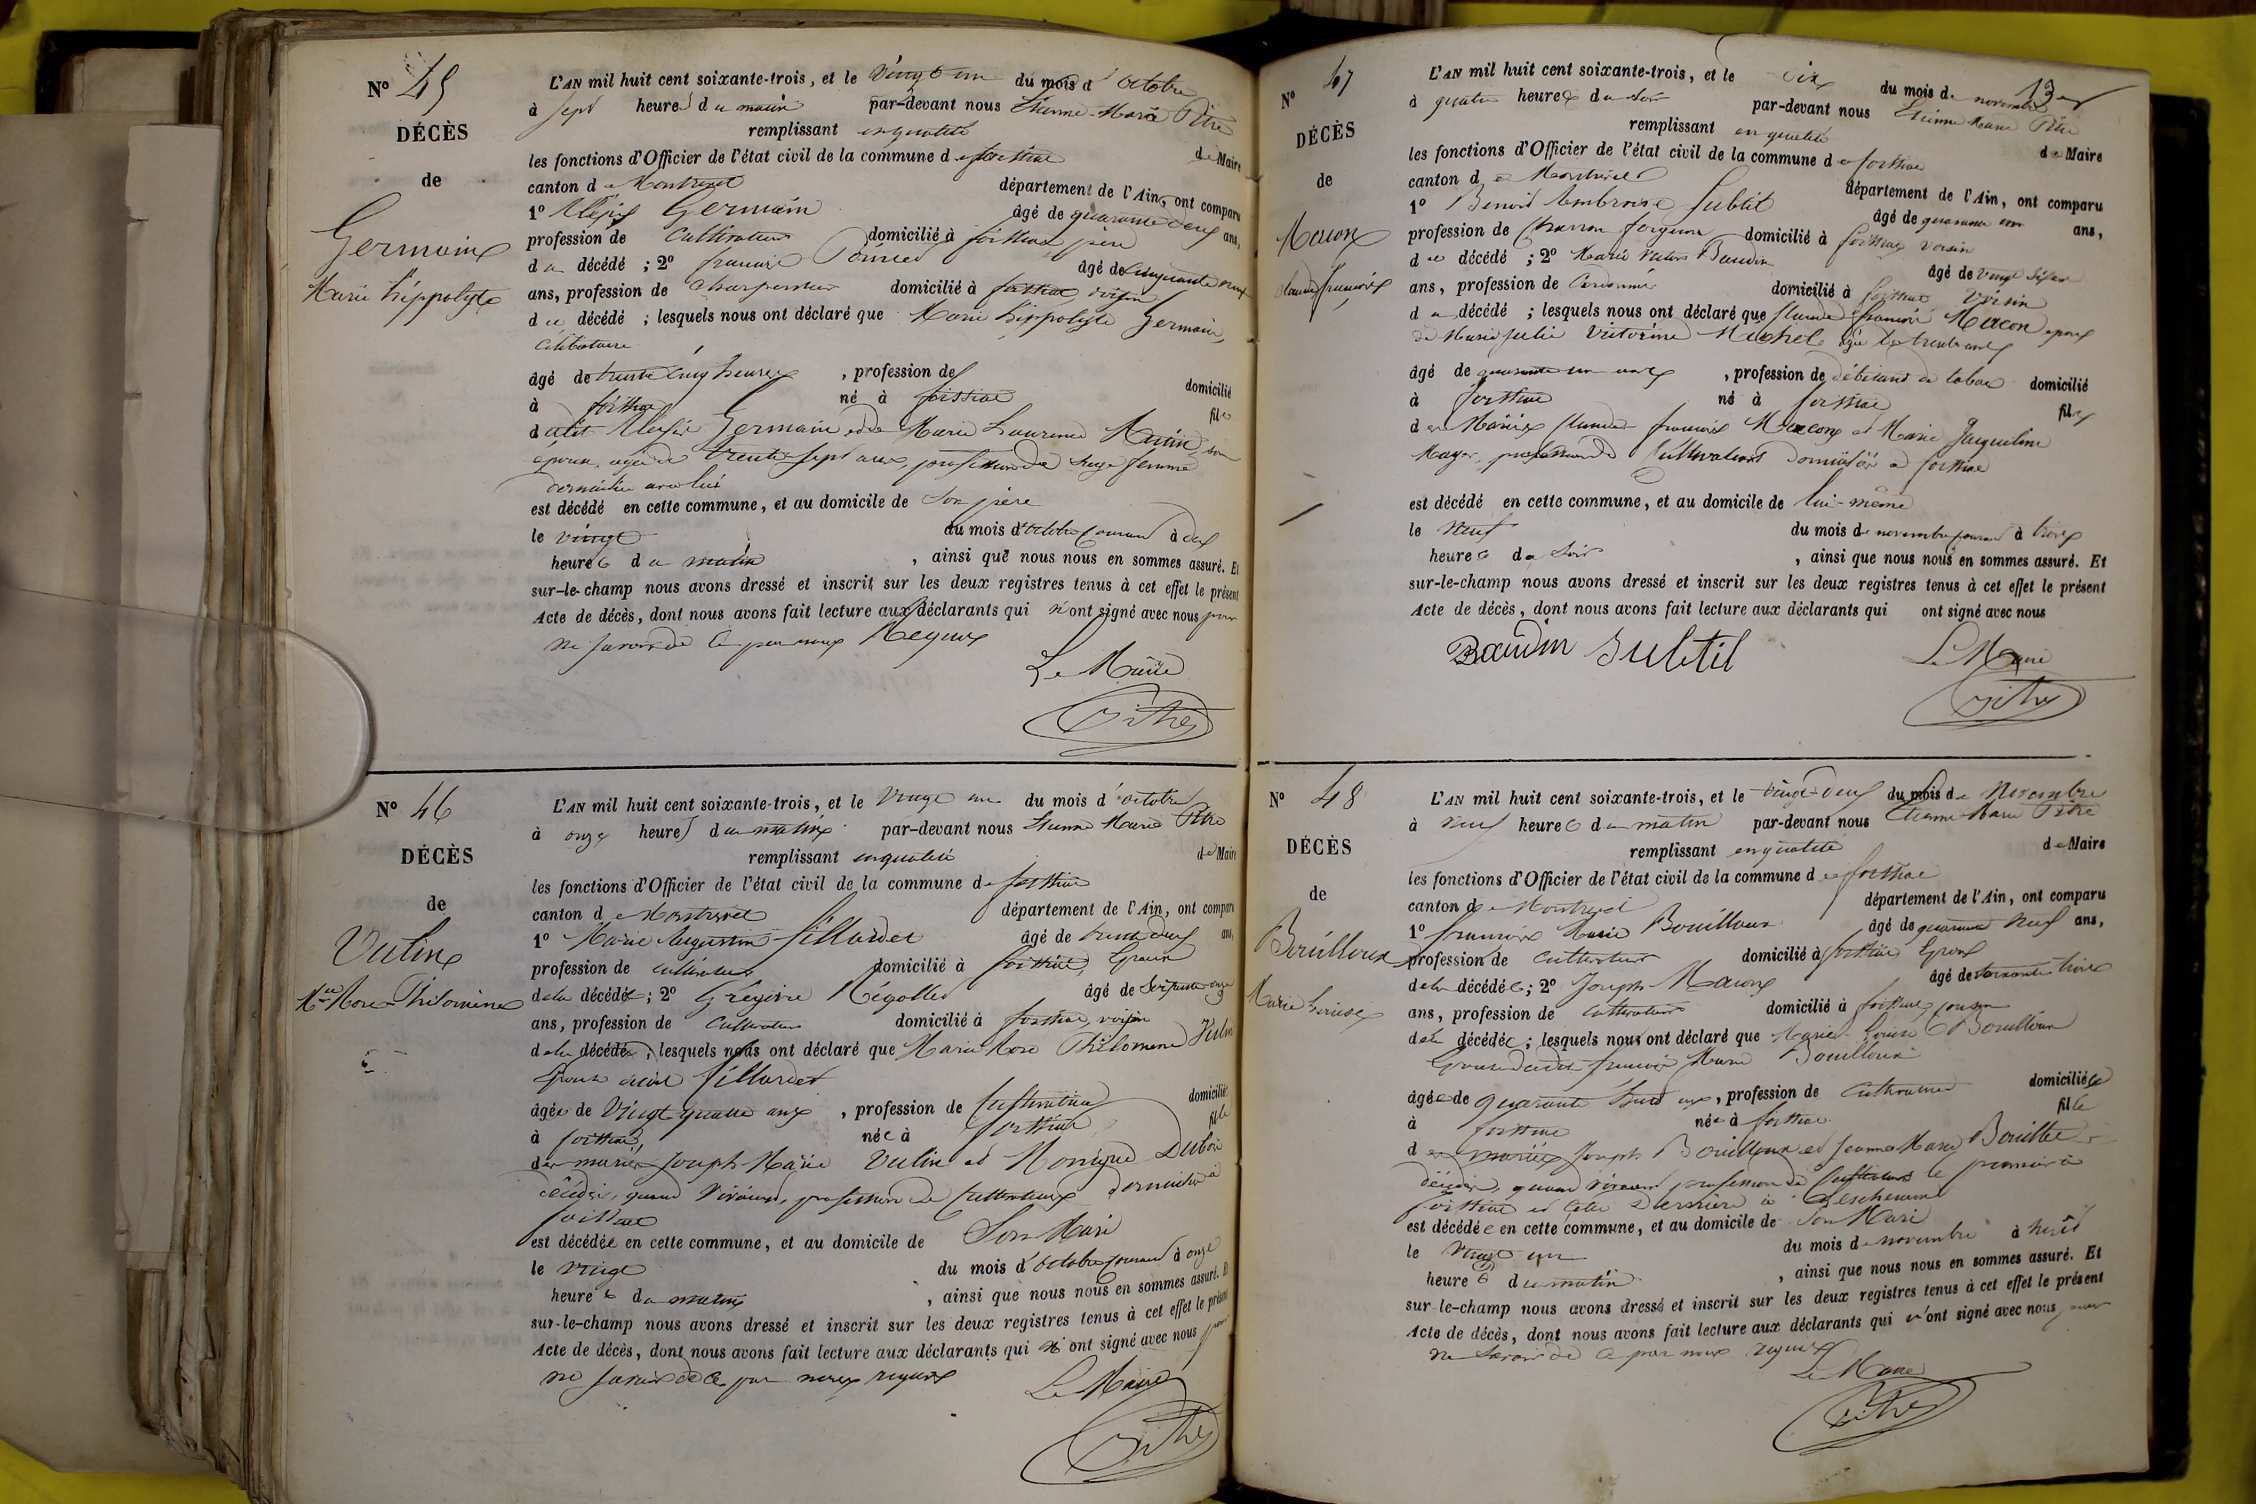 N° 45
DÉCÈS
de
Germain
Marie hippolyte
L'AN mil huit cent soixante-trois, et le vingt un du mois d'octobre
à sept heures du matin par-devant nous Etienne Marie Pitre
remplissant en qualité de Maire
les fonctions d'Officier de l'état civil de la commune de
canton de Montrevel département de l'Ain, ont comparu
1° Alexis Germain âgé de quarante deux ans,
profession de Cultivateur domicilié à père
du décédé ; 2° françois âgé de cinquante
ans, profession de Charpentier domicilié à voisin
du décédé ; lesquels nous ont déclaré que Marie hippolyte Germain,
Célibataire
âgé de trente cinq heures, profession de domicilié
à né à fils
dudit Alexis Germain et de Marie Laurence son
épouse, agée de trente sept ans, profession de Sage femme
domiciliée avec lui
est décédé en cette commune, et au domicile de Son père
le vingt du mois d'octobre courant à deux
heures du matin, ainsi que nous nous en sommes assuré. Et
sur-le-champ nous avons dressé et inscrit sur les deux registres tenus à cet effet le présent
Acte de décès, dont nous avons fait lecture aux déclarants qui n'ont signé avec nous pour
ne savoir de ce par nous Requis
Le Maire
Pitre
N° 46
DÉCÈS
de
Vulin
Mie Rose Philomène
L'AN mil huit cent soixante-trois, et le vingt un du mois d'octobre
à onze heures du matin par-devant nous Etienne Marie Pitre
remplissant en qualité de Maire
les fonctions d'Officier de l'état civil de la commune de
canton de Montrevel département de l'Ain, ont comparu
1° Marie Augustin Sillardet âgé de trente deux ans,
profession de cultivateur domicilié à Epoux
de la décédée ; 2° Grégoire âgé de soixante onze
ans, profession de Cultivateur domicilié à voisin
de la décédée ; lesquels nous ont déclaré que Marie Rose Philomène Vulin
Epouse dudit Sillardet
âgée de vingt quatre ans, profession de Cultivatrice domiciliée
à née à fille
des mariés Joseph Marie Vulin et Monique Dubois
décédés, quand vivaient, profession de Cultivateurs domiciliés à
est décédée en cette commune, et au domicile de Son Mari
le vingt du mois d'octobre courant à onze
heures du matin, ainsi que nous nous en sommes assuré. Et
sur-le-champ nous avons dressé et inscrit sur les deux registres tenus à cet effet le présent
Acte de décès, dont nous avons fait lecture aux déclarants qui n'ont signé avec nous pour
ne savoir de ce par nous requis
Le Maire
Pitre
13
N° 47
DÉCÈS
de
Macon
Claude françois
L'AN mil huit cent soixante-trois, et le dix du mois de novembre
à quatre heures du soir par-devant nous Etienne Marie Pitre
remplissant en qualité de Maire
les fonctions d'Officier de l'état civil de la commune de
canton de Montrevel département de l'Ain, ont comparu
1° Benoit Ambroise Subtil âgé de quarante un ans,
profession de Charron forgeron domicilié à voisin
du décédé ; 2° Marie Baudin âgé de vingt
ans, profession de Cordonnier domicilié à Voisin
du décédé ; lesquels nous ont déclaré que Claude françois Macon époux
de Marie Julie Victorine Michel agée de trente ans
âgé de quarante un ans, profession de débitant de tabac domicilié
à né à fils
des Mariés Claude françois Macon et Marie Jacqueline
profession de Cultivateurs domiciliés à
est décédé en cette commune, et au domicile de lui-même
le neuf du mois de novembre courant à trois
heures du soir, ainsi que nous nous en sommes assuré. Et
sur-le-champ nous avons dressé et inscrit sur les deux registres tenus à cet effet le présent
Acte de décès, dont nous avons fait lecture aux déclarants qui ont signé avec nous
Baudin Subtil
Le Maire
Pitre
N° 48
DÉCÈS
de
Bouilloux
Marie Louise
L'AN mil huit cent soixante-trois, et le vingt-deux du mois de Novembre
à neuf heures du matin par-devant nous Etienne Marie Pitre
remplissant en qualité de Maire
les fonctions d'Officier de l'état civil de la commune de
canton de Montrevel département de l'Ain, ont comparu
1° françois Marie Bouilloux âgé de quarante neuf ans,
profession de Cultivateur domicilié à Epoux
de la décédée ; 2° Joseph Macon âgé de soixante trois
ans, profession de Cultivateur domicilié à cousin
de la décédée ; lesquels nous ont déclaré que Marie Louise Bouilloux
Epouse dudit françois Marie Bouilloux
âgée de quarante huit ans, profession de Cultivatrice domiciliée
à née à fille
des mariés Joseph Bouilloux et Jeanne Marie
décédés, quand vivaient profession de Cultivateurs le premier à
et cette dernière à
est décédée en cette commune, et au domicile de Son Mari
le vingt un du mois de novembre à huit
heures du matin, ainsi que nous nous en sommes assuré. Et
sur-le-champ nous avons dressé et inscrit sur les deux registres tenus à cet effet le présent
Acte de décès, dont nous avons fait lecture aux déclarants qui n'ont signé avec nous pour
ne savoir de ce par nous requis
Le Maire
Pitre